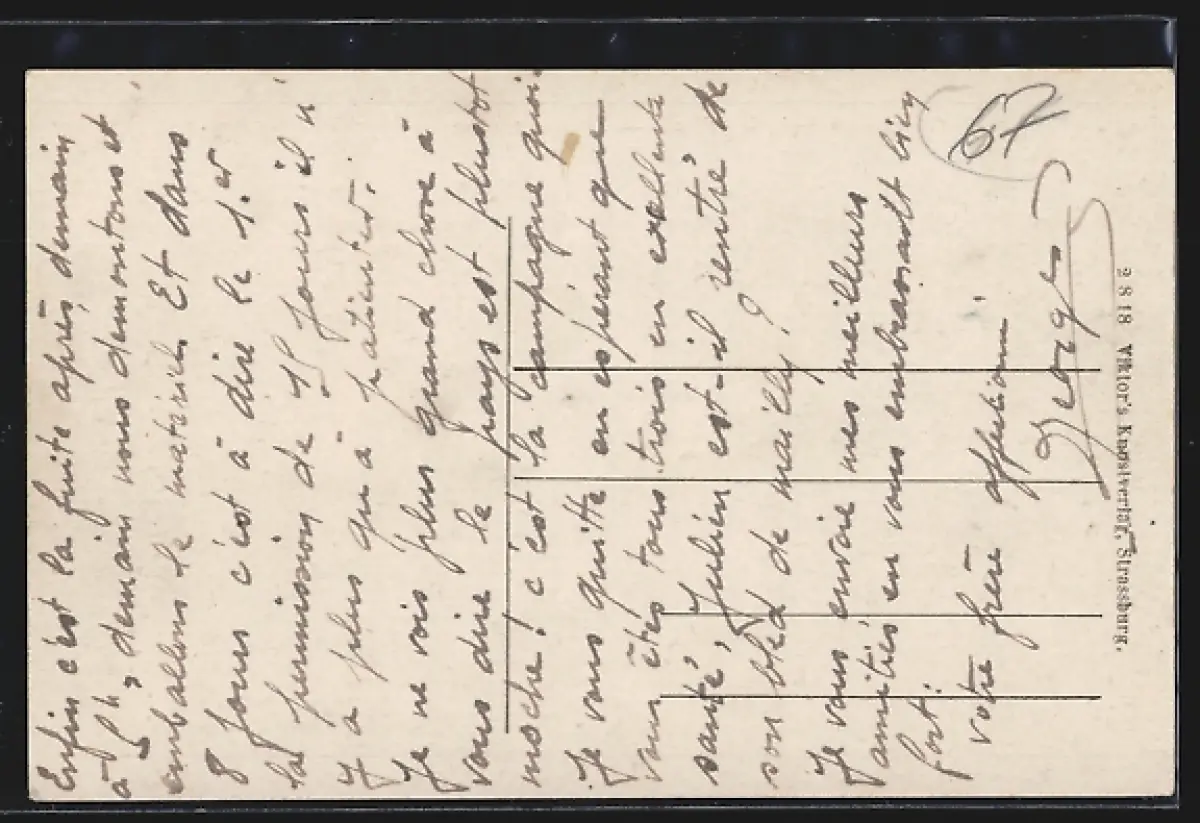 Enfin c'est la fuite après demain
à 5h, demain nous demontons et
emballons le matériel. Et dans
8 jours c'est à dire le 1.er
la permission de 15 jours il n'
y a plus qu'à patienter.
Je ne vois plus grand chose à
vous dire le pays est plustot
moche! c'est la campagne quoi.
Je vous quitte en espérant que
vous êtes tous trois en exellente
santé, Julien est-il rentré de
son bled de mailly?
Je vous envoie mes meilleurs
amitiés en vous embrassant bien
fort.
votre frère affectionné
Georges
67
2818 Viktor's Kunstverlag, Strassburg.